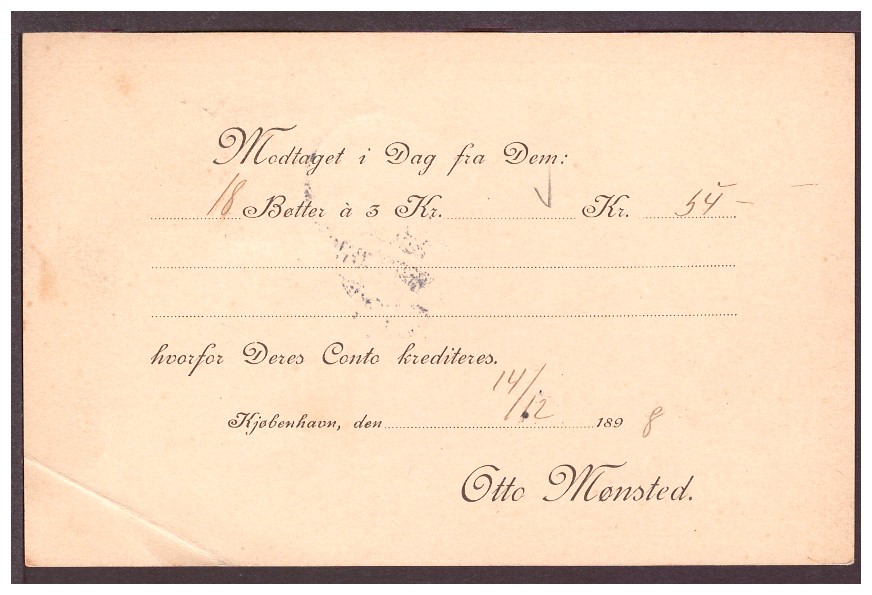 Modtaget i Dag fra Dem:
18 Bøtter à 3 Kr. Kr. 54 —
hvorfor Deres Conto krediteres.
Kjøbenhavn, den 14/12 1898
Otto Mønsted.